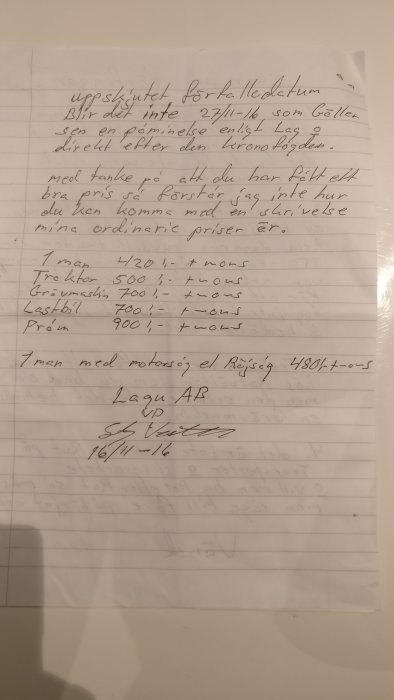 uppskjutet förfallodatum
Blir det inte 27/11-16 som Gäller
sen en påminelse enligt Lag o
direkt efter den kronofogden.
med tanke på att du har fått ett
bra pris så förstår jag inte hur
du kan komma med en skrivelse
mina ordinarie priser är.
1 man 420:- + moms
Traktor 500:- + moms
Grävmaskin 700:- + moms
Lastbil 700:- + moms
Pråm 900:- + moms
1 man med motorsåg el Röjsåg 480:- + moms
Lagu AB
VD
16/11-16